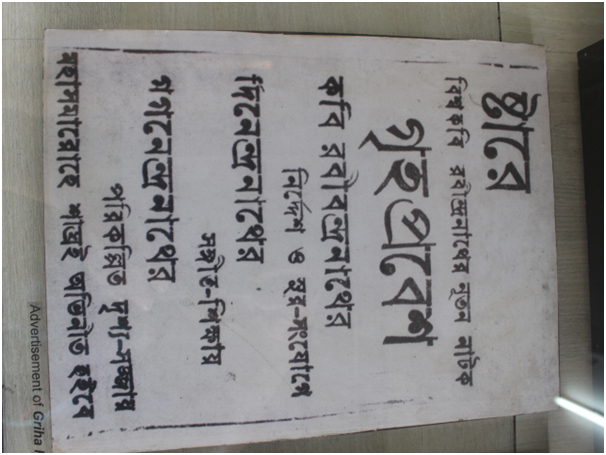 ষ্টারে
বিশ্বকবি রবীন্দ্রনাথের নূতন নাটক
গৃহপ্রবেশ
কবি রবীন্দ্রনাথের
নির্দ্দেশ ও সুর-সংযোগে
দিনেন্দ্রনাথের
সঙ্গীত-শিক্ষায়
গগনেন্দ্রনাথের
পরিকল্পিত দৃশ্য-সজ্জায়
মহাসমারোহে শীঘ্রই অভিনীত হইবে
Advertisement of Griha